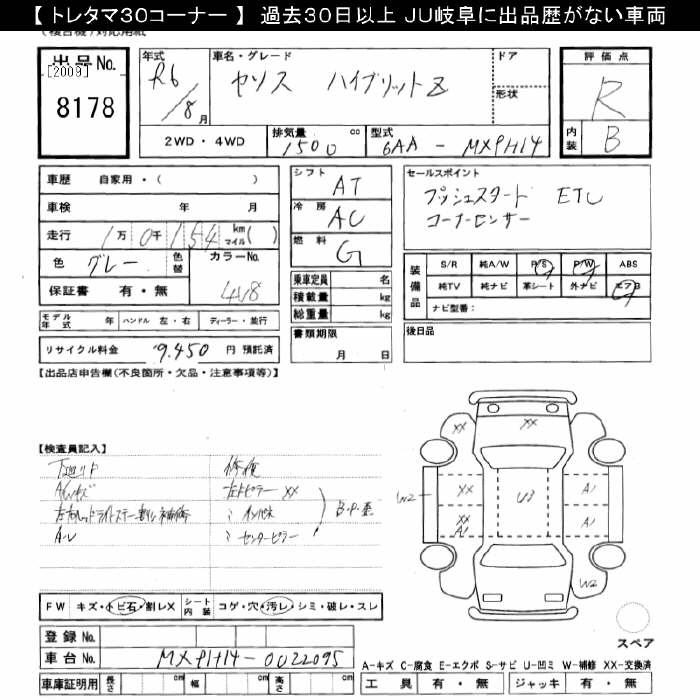 【 トレタマ30コーナー 】 過去30日以上 JU岐阜に出品歴がない車両
出品No.
[2009]
8178
年式
R6/8月
車名・グレード
ヤリス ハイブリットZ
ドア
形状
評価点
R
内装
B
2WD・4WD
排気量
1500 cc
型式
6AA - MXPH14
車歴 自家用・( )
車検 年 月
走行 1万0千154 km マイル( )
色 グレー 色替
カラーNo.
4V8
保証書 有・無
モデル年式 年 ハンドル 左・右 ディーラー・並行
リサイクル料金 9.450 円 預託済
シフト AT
冷房 AC
燃料 G
乗車定員 名
積載量 kg
総重量 kg
書類期限
月 日
セールスポイント
プッシュスタート ETC
コーナーセンサー
装備品
S/R 純A/W P/S P/W ABS
純TV 純ナビ 革シート 外ナビ エアB
ナビ型番:
後日品
【出品店申告欄(不良箇所・欠品・注意事項等)】
【検査員記入】
下廻りサビ 修復
A-キズ 左Fピラー XX
A-U 〃 センターピラー
XX
XX
XX
A1
U3
A1
A1
W2
W2
FW キズ・トビ石・割レX
シート内装 コゲ・穴・汚レ・シミ・破レ・スレ
登録 No.
車台 No. MXPH14-0022095
車庫証明用 長さ cm 幅 cm 高さ cm
スペア
A-キズ C-腐食 E-エクボ S-サビ U-凹ミ W-補修 XX-交換済
工具 有・無 ジャッキ 有・無